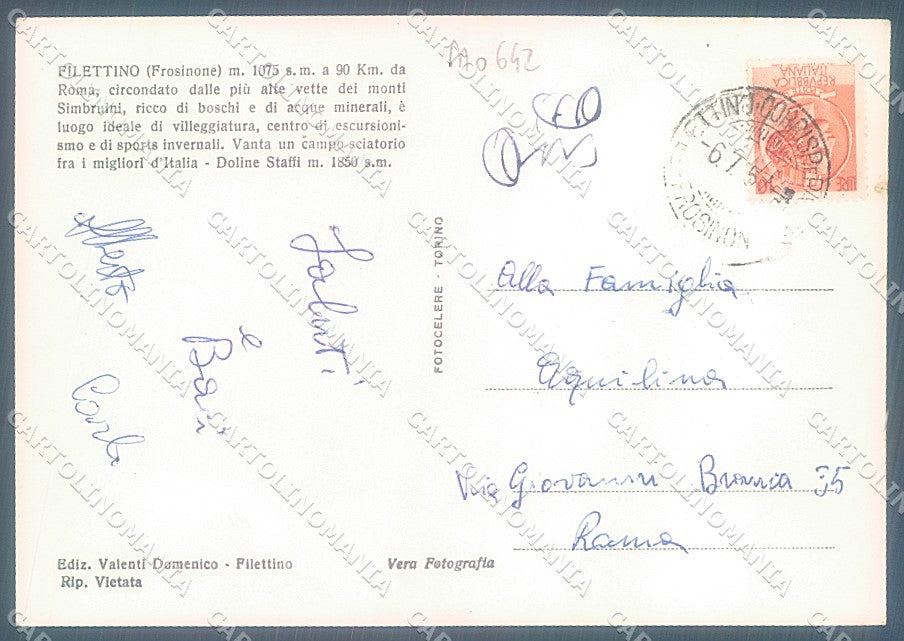 FILETTINO (Frosinone) m. 1075 s.m. a 90 Km. da
Roma, circondato dalle più alte vette dei monti
Simbruini, ricco di boschi e di acque minerali, è
luogo ideale di villeggiatura, centro di escursioni-
smo e di sports invernali. Vanta un campo sciatorio
fra i migliori d'Italia - Doline Staffi m. 1850 s.m.
642
REPVBBLICA
ITALIANA
LIRE
-6.7.5
FROSINON
Saluti
e
Baci
Alberto
FOTOCELERE - TORINO
Alla Famiglia
Aquilina
Via Giovanni Branca 35
Roma
Ediz. Valenti Domenico - Filettino
Rip. Vietata
Vera Fotografia
CARTOLINOMANIA